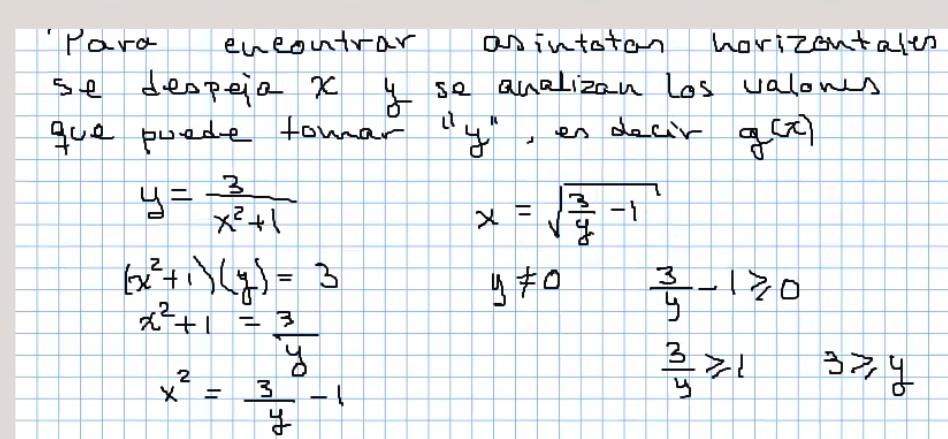 Para encontrar asintotas horizontales
se despeja x y se analizan los valores
que puede tomar "y", es decir g(x)
y = 3/(x²+1)
(x²+1)(y) = 3
x²+1 = 3/y
x² = 3/y - 1
x = √(3/y - 1)
y ≠ 0 3/y - 1 ≥ 0
3/y ≥ 1 3 ≥ y